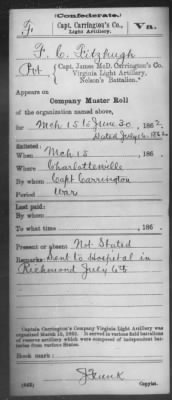 (Confederate.)
F Capt. Carrington's Co., Va.
Light Artillery.
F. C. Fitzhugh
Pvt { Capt. James McD. Carrington's Co.
Virginia Light Artillery,
Nelson's Battalion.*
Appears on
Company Muster Roll
of the organization named above,
for Mch 15 to June 30, 1862.
Dated July 16, 1862
Enlisted:
When Mch 15, 186 .
Where Charlottesville
By whom Capt Carrington
Period War
Last paid:
By whom
To what time , 186 .
Present or absent Not Stated
Remarks: Sent to Hospital in
Richmond July 6th
Captain Carrington's Company Virginia Light Artillery was
organized March 15, 1862. It served in various field battalions
of reserve artillery which were composed of independent bat-
teries from various States.
Book mark:
J Funk
(642) Copyist.